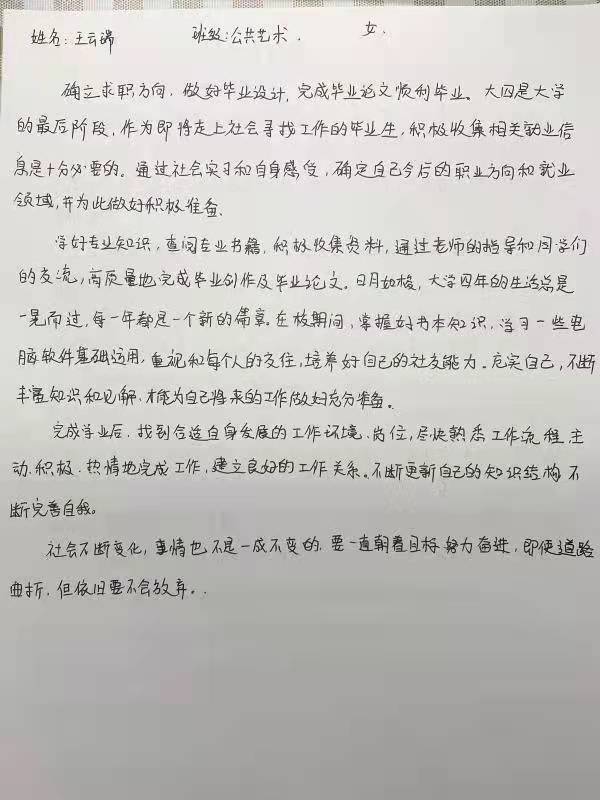 姓名:王云瑞 班级:公共艺术. 女.
确立求职方向,做好毕业设计,完成毕业论文顺利毕业。大四是大学
的最后阶段,作为即将走上社会寻找工作的毕业生,积极收集相关就业信
息是十分必要的。通过社会实习和自身感受,确定自己今后的职业方向和就业
领域,并为此做好积极准备.
学好专业知识,查阅专业书籍,积极收集资料,通过老师的指导和同学们
的交流,高质量地完成毕业创作及毕业论文。日月如梭,大学四年的生活总是
一晃而过,每一年都是一个新的篇章。在校期间,掌握好书本知识,学习一些电
脑软件基础运用,重视和每个人的交往,培养好自己的社交能力。充实自己,不断
丰富知识和见解,才能为自己将来的工作做好充分准备。
完成学业后,找到合适自身发展的工作环境、岗位,尽快熟悉工作流程,主
动、积极、热情地完成工作,建立良好的工作关系。不断更新自己的知识结构,不
断完善自我。
社会不断变化,事情也不是一成不变的,要一直朝着目标努力奋进,即使道路
曲折,但依旧要不会放弃。.